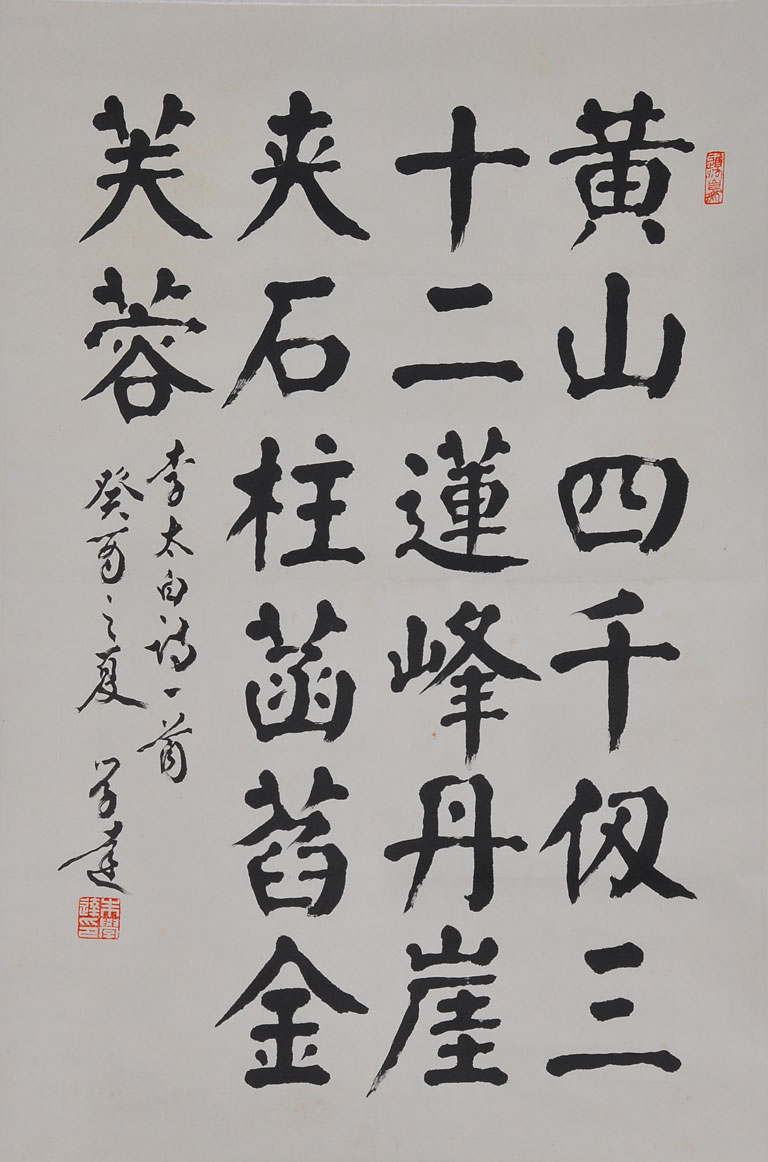 黄山四千仭三
十二蓮峰丹崖
夾石柱菡萏金
芙蓉
李太白詩一首
癸酉之夏 学達
朱學達印